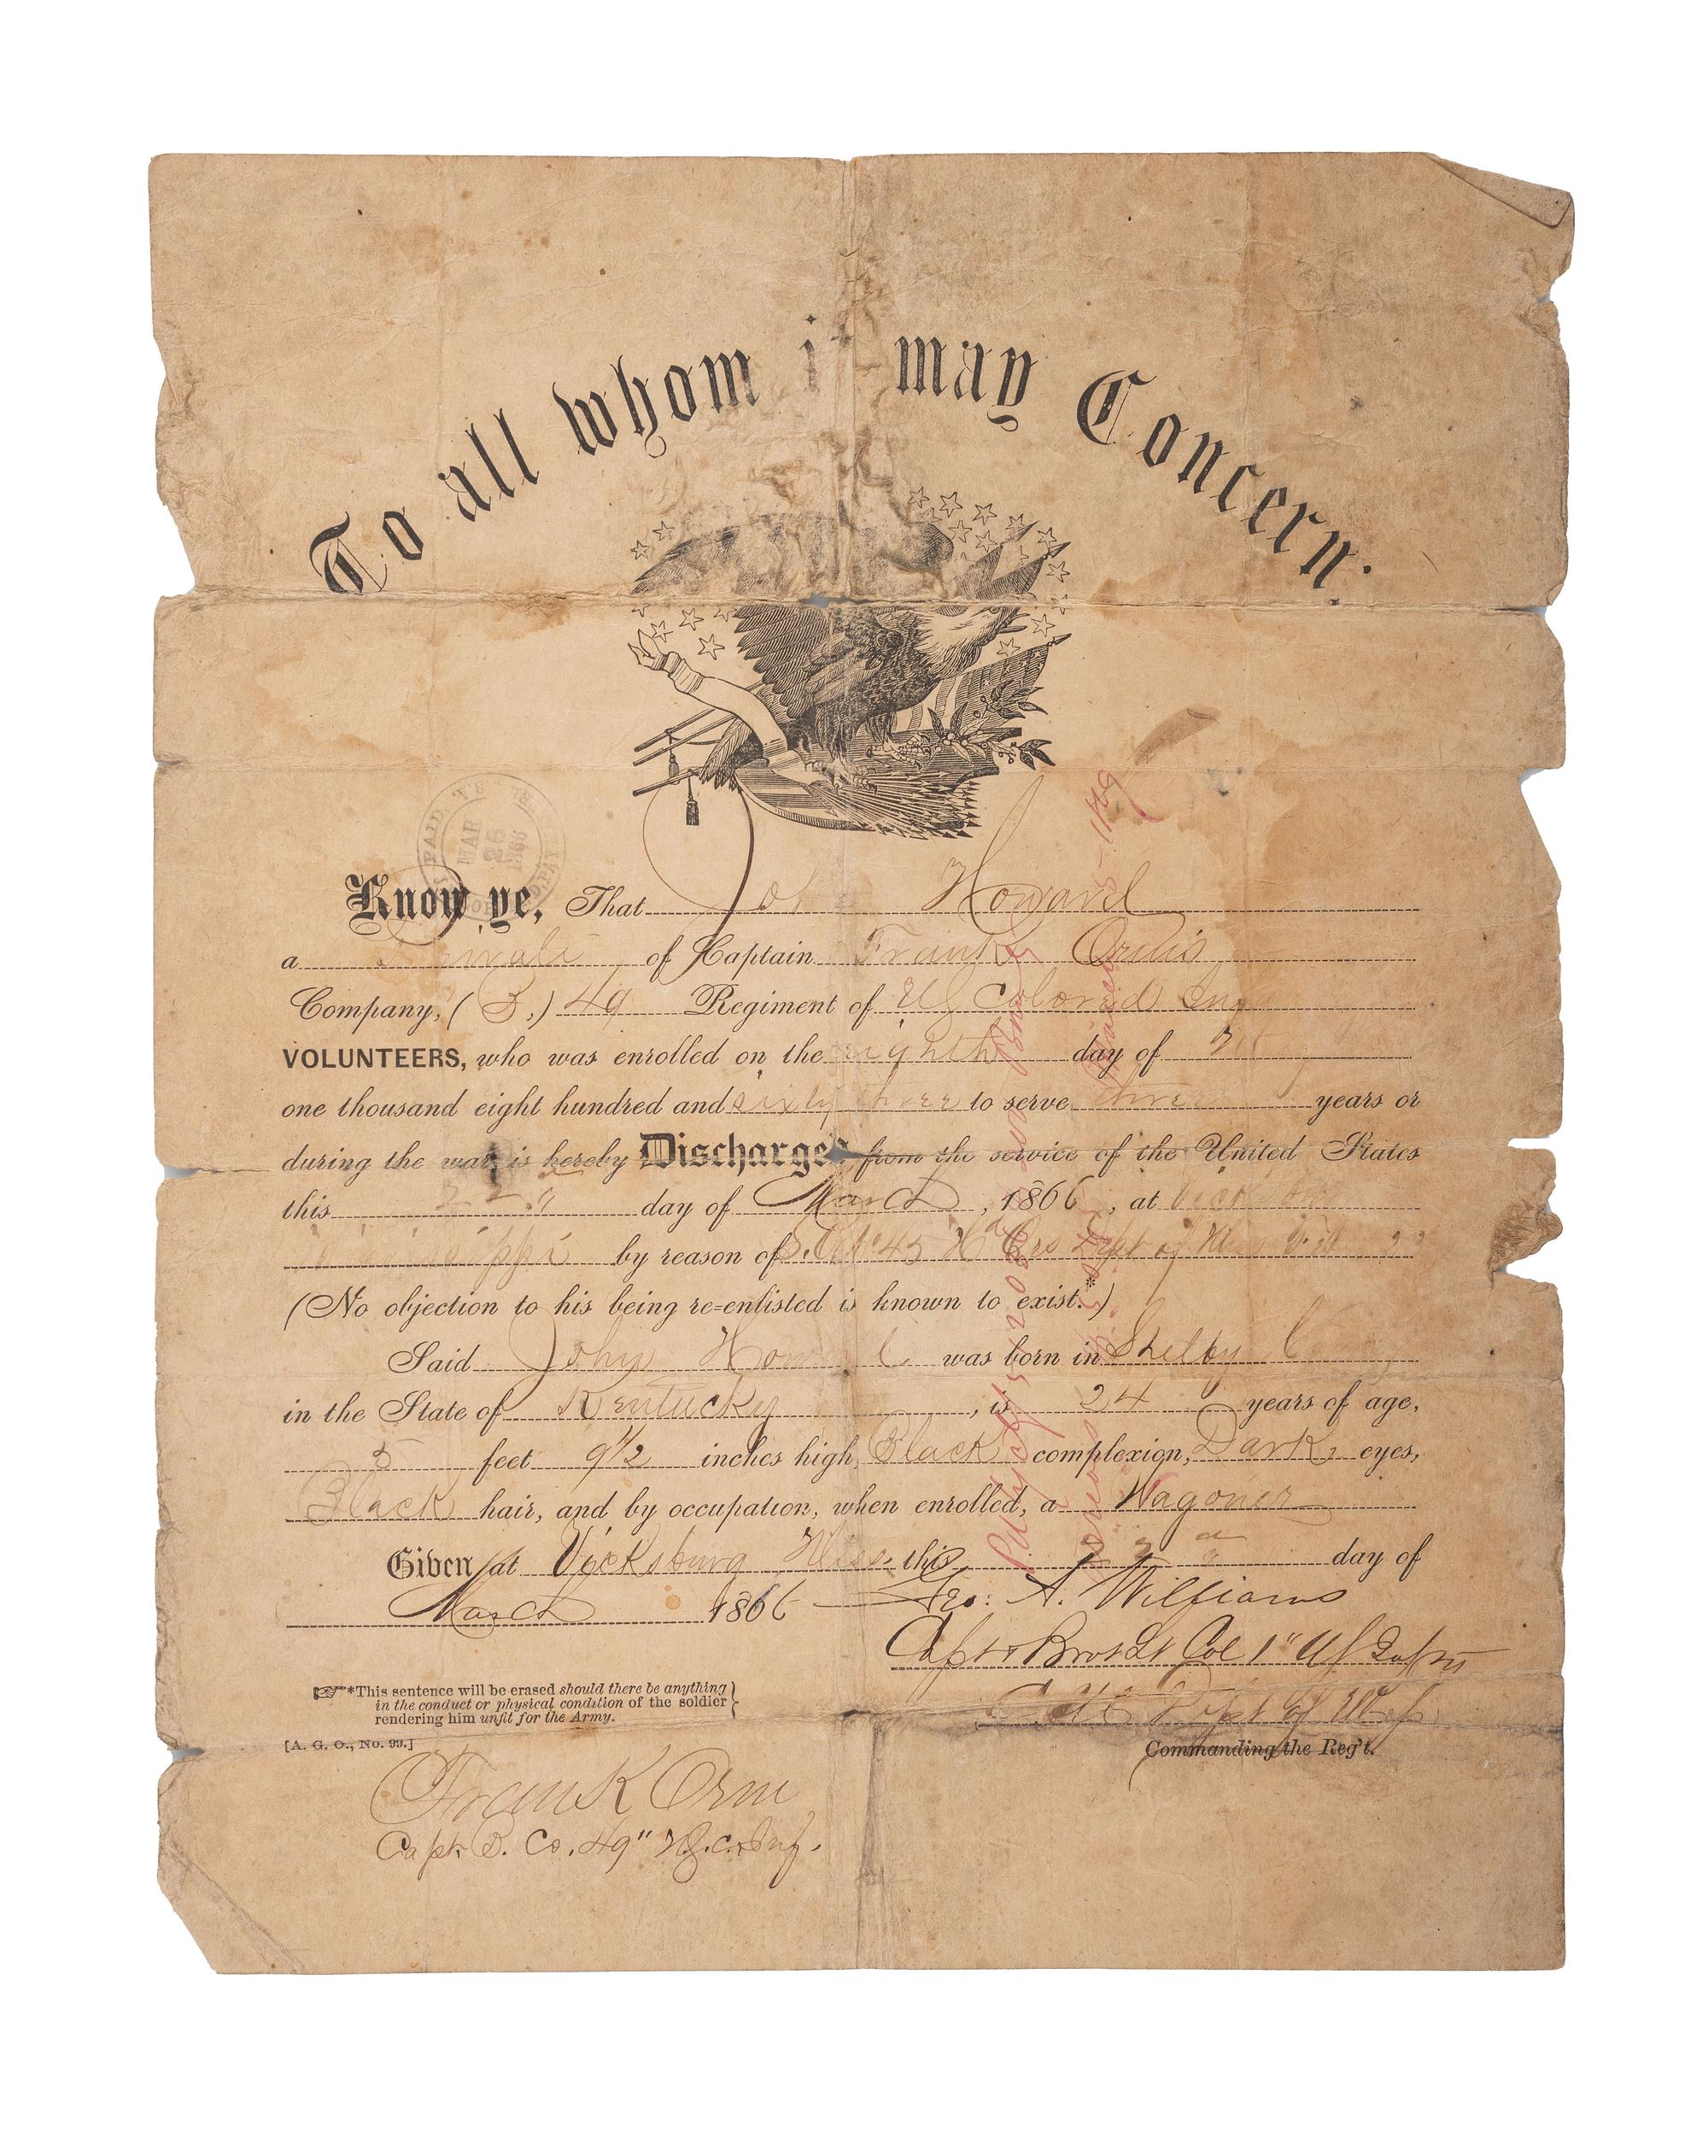 To all whom it may Concern.
PAID
MAR
26
1866
Know ye, That Joh Howard
a of Captain Frank Orm's
Company, (B,) 49 Regiment of US Colored Inf
VOLUNTEERS, who was enrolled on the eighth day of
one thousand eight hundred and sixty three to serve three years or
during the war is hereby Discharged from the service of the United States
this 22 day of March, 1866, at Vicksburg
Mississippi by reason of S.O. No 45 Hd Qrs Dept of Miss
(No objection to his being re-enlisted is known to exist.*)
Said John Howard was born in Shelby County
in the State of Kentucky, is 24 years of age,
5 feet 9 1/2 inches high, Black complexion, Dark eyes,
Black hair, and by occupation, when enrolled, a Wagoner
Given at Vicksburg Miss. this 22d day of
March 1866 Geo: A. Williams
Capt & Brvt Lt Col 1" US Infty
Dept of Miss
Commanding the Reg't.
*This sentence will be erased should there be anything
in the conduct or physical condition of the soldier
rendering him unfit for the Army.
[A. G. O., No. 99.]
Frank Orm
Capt. B. Co. 49" U.S.C. Inf.